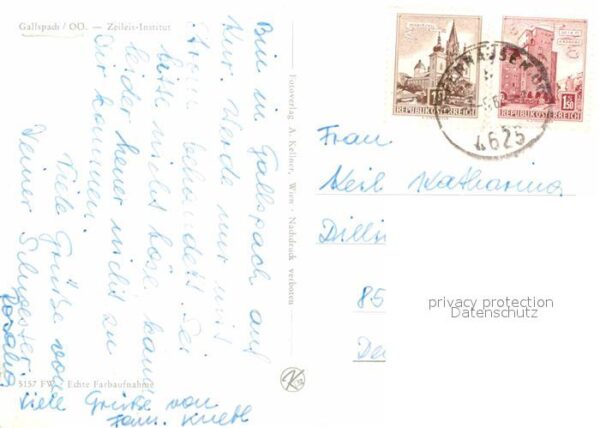 Gallspach / OÖ. — Zeileis-Institut
Bin in Gallspach auf
Kur. Werde nur mit
behandelt. Sei
bitte nicht böse kann
leider heuer nicht zu
Dir kommen.
Viele Grüße von
Deiner Schwester
Rosalia
Viele Grüße von
Fam.
5157 FW Echte Farbaufnahme
Fotoverlag A. Kellner, Wien - Nachdruck verboten
K
REPUBLIK ÖSTERREICH
1.50
REPUBLIK ÖSTERREICH
4625
Frau
Keil Katharina
Dilli
85
De
privacy protection
Datenschutz